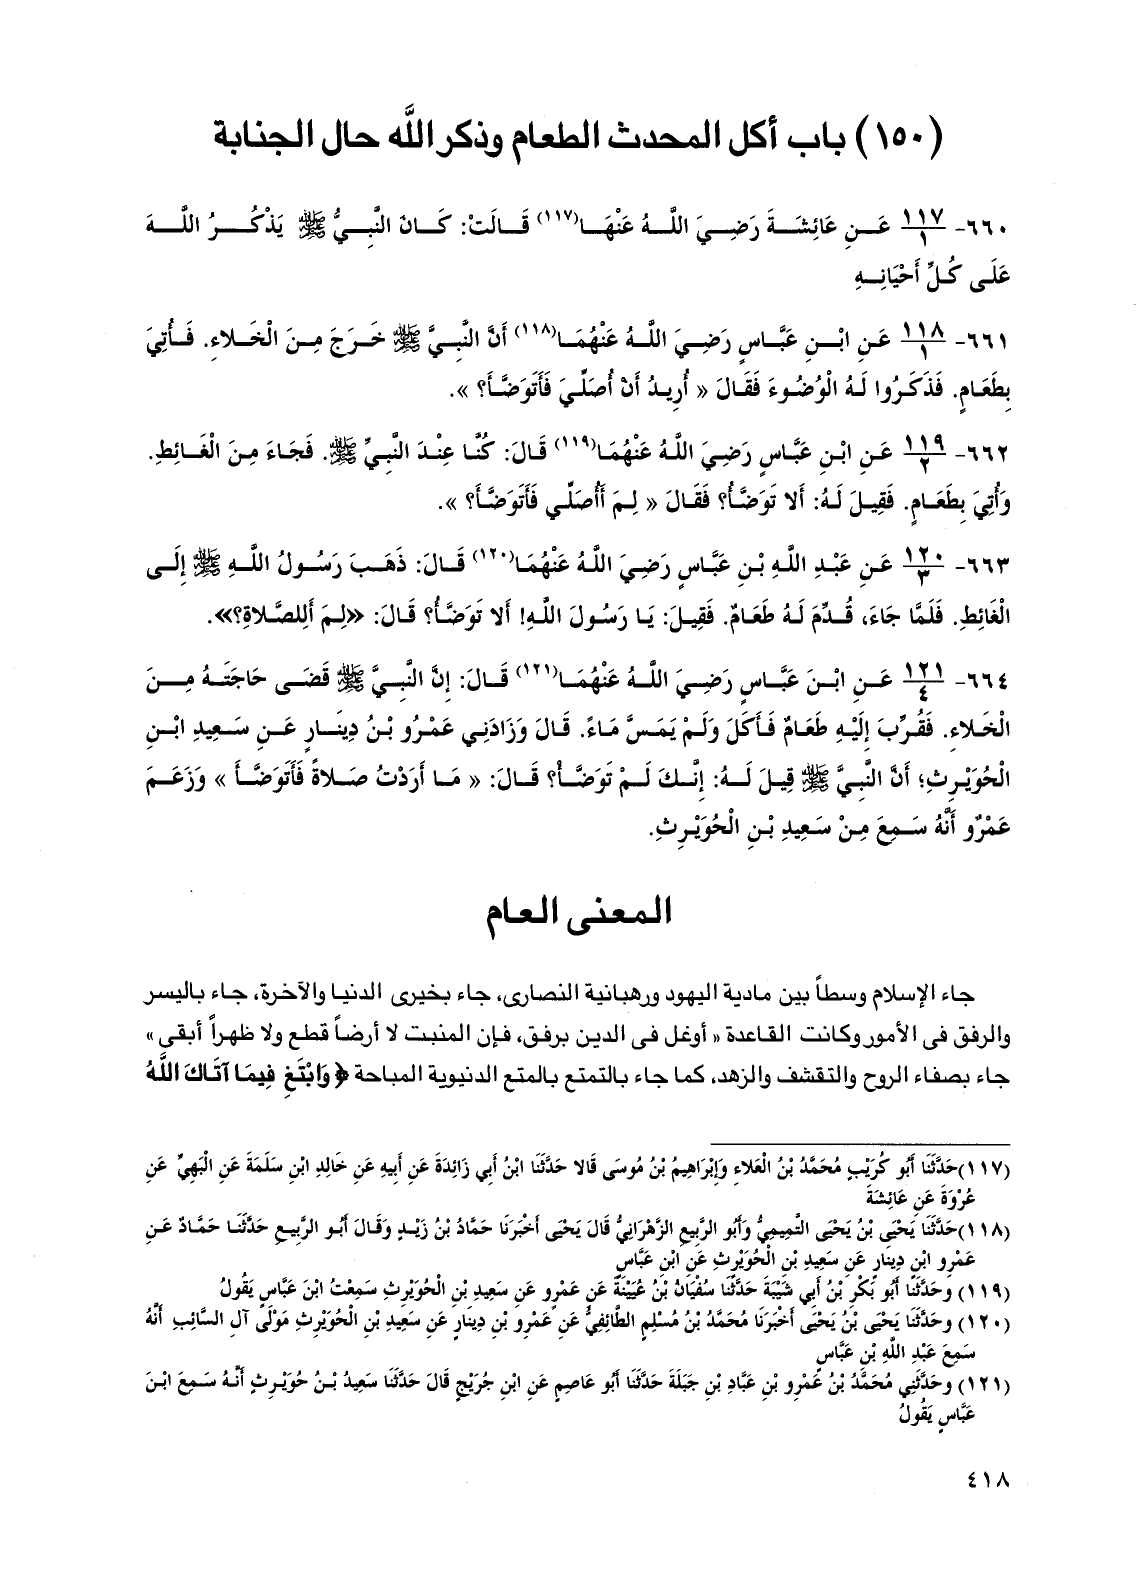 (١٥٠) باب أكل المحدث الطعام وذكر اللَّه حال الجنابة
٦٦٠- ١١٧/١ عَنِ عَائِشَةَ رَضِيَ اللَّهُ عَنْهَا(١١٧) قَالَتْ: كَانَ النَّبِيُّ ﷺ يَذْكُرُ اللَّهَ
عَلَى كُلِّ أَحْيَانِهِ
٦٦١- ١١٨/١ عَنِ ابْنِ عَبَّاسٍ رَضِيَ اللَّهُ عَنْهُمَا(١١٨) أَنَّ النَّبِيَّ ﷺ خَرَجَ مِنَ الْخَلاءِ. فَأُتِيَ
بِطَعَامٍ. فَذَكَرُوا لَهُ الْوُضُوءَ فَقَالَ « أُرِيدُ أَنْ أُصَلِّيَ فَأَتَوَضَّأَ؟ ».
٦٦٢- ١١٩/٢ عَنِ ابْنِ عَبَّاسٍ رَضِيَ اللَّهُ عَنْهُمَا(١١٩) قَالَ: كُنَّا عِنْدَ النَّبِيِّ ﷺ. فَجَاءَ مِنَ الْغَائِطِ.
وَأُتِيَ بِطَعَامٍ. فَقِيلَ لَهُ: أَلا تَوَضَّأُ؟ فَقَالَ « لِمَ أَأُصَلِّي فَأَتَوَضَّأَ؟ ».
٦٦٣- ١٢٠/٣ عَنِ عَبْدِ اللَّهِ بْنِ عَبَّاسٍ رَضِيَ اللَّهُ عَنْهُمَا(١٢٠) قَالَ: ذَهَبَ رَسُولُ اللَّهِ ﷺ إِلَى
الْغَائِطِ. فَلَمَّا جَاءَ، قُدِّمَ لَهُ طَعَامٌ. فَقِيلَ: يَا رَسُولَ اللَّهِ! أَلا تَوَضَّأُ؟ قَالَ: «لِمَ أَلِلصَّلاةِ؟».
٦٦٤- ١٢١/٤ عَنِ ابْنَ عَبَّاسٍ رَضِيَ اللَّهُ عَنْهُمَا(١٢١) قَالَ: إِنَّ النَّبِيَّ ﷺ قَضَى حَاجَتَهُ مِنَ
الْخَلاءِ. فَقُرِّبَ إِلَيْهِ طَعَامٌ فَأَكَلَ وَلَمْ يَمَسَّ مَاءً. قَالَ وَزَادَنِي عَمْرُو بْنُ دِينَارٍ عَنِ سَعِيدِ ابْنِ
الْحُوَيْرِثِ؛ أَنَّ النَّبِيَّ ﷺ قِيلَ لَهُ: إِنَّكَ لَمْ تَوَضَّأْ؟ قَالَ: « مَا أَرَدْتُ صَلاةً فَأَتَوَضَّأَ » وَزَعَمَ
عَمْرٌو أَنَّهُ سَمِعَ مِنْ سَعِيدِ بْنِ الْحُوَيْرِثِ.
المعنى العام
جاء الإسلام وسطاً بين مادية اليهود ورهبانية النصارى، جاء بخيرى الدنيا والآخرة، جاء باليسر
والرفق فى الأمور وكانت القاعدة « أوغل فى الدين برفق، فإن المنبت لا أرضاً قطع ولا ظهراً أبقى »
جاء بصفاء الروح والتقشف والزهد، كما جاء بالتمتع بالمتع الدنيوية المباحة ﴿ وَابْتَغِ فِيمَا آتَاكَ اللَّهُ
(١١٧)حَدَّثَنَا أَبُو كُرَيْبٍ مُحَمَّدُ بْنُ الْعَلاءِ وَإِبْرَاهِيمُ بْنُ مُوسَى قَالا حَدَّثَنَا ابْنُ أَبِي زَائِدَةَ عَنِ أَبِيهِ عَنِ خَالِدِ ابْنِ سَلَمَةَ عَنِ الْبَهِيِّ عَنِ
عُرْوَةَ عَنِ عَائِشَةَ
(١١٨)حَدَّثَنَا يَحْيَى بْنُ يَحْيَى التَّمِيمِيُّ وَأَبُو الرَّبِيعِ الزَّهْرَانِيُّ قَالَ يَحْيَى أَخْبَرَنَا حَمَّادُ بْنُ زَيْدٍ وَقَالَ أَبُو الرَّبِيعِ حَدَّثَنَا حَمَّادٌ عَنِ
عَمْرِو ابْنِ دِينَارٍ عَنِ سَعِيدِ بْنِ الْحُوَيْرِثِ عَنِ ابْنِ عَبَّاسٍ
(١١٩) وحَدَّثَنَا أَبُو بَكْرِ بْنُ أَبِي شَيْبَةَ حَدَّثَنَا سُفْيَانُ بْنُ عُيَيْنَةَ عَنِ عَمْرٍو عَنِ سَعِيدِ بْنِ الْحُوَيْرِثِ سَمِعْتُ ابْنَ عَبَّاسٍ يَقُولُ
(١٢٠) وحَدَّثَنَا يَحْيَى بْنُ يَحْيَى أَخْبَرَنَا مُحَمَّدُ بْنُ مُسْلِمٍ الطَّائِفِيُّ عَنِ عَمْرِو بْنِ دِينَارٍ عَنِ سَعِيدِ بْنِ الْحُوَيْرِثِ مَوْلَى آلِ السَّائِبِ أَنَّهُ
سَمِعَ عَبْدِ اللَّهِ بْنِ عَبَّاسٍ
(١٢١) وحَدَّثَنِي مُحَمَّدُ بْنُ عَمْرِو بْنِ عَبَّادِ بْنِ جَبَلَةَ حَدَّثَنَا أَبُو عَاصِمٍ عَنِ ابْنِ جُرَيْجٍ قَالَ حَدَّثَنَا سَعِيدُ بْنُ حُوَيْرِثٍ أَنَّهُ سَمِعَ ابْنَ
عَبَّاسٍ يَقُولُ
٤١٨